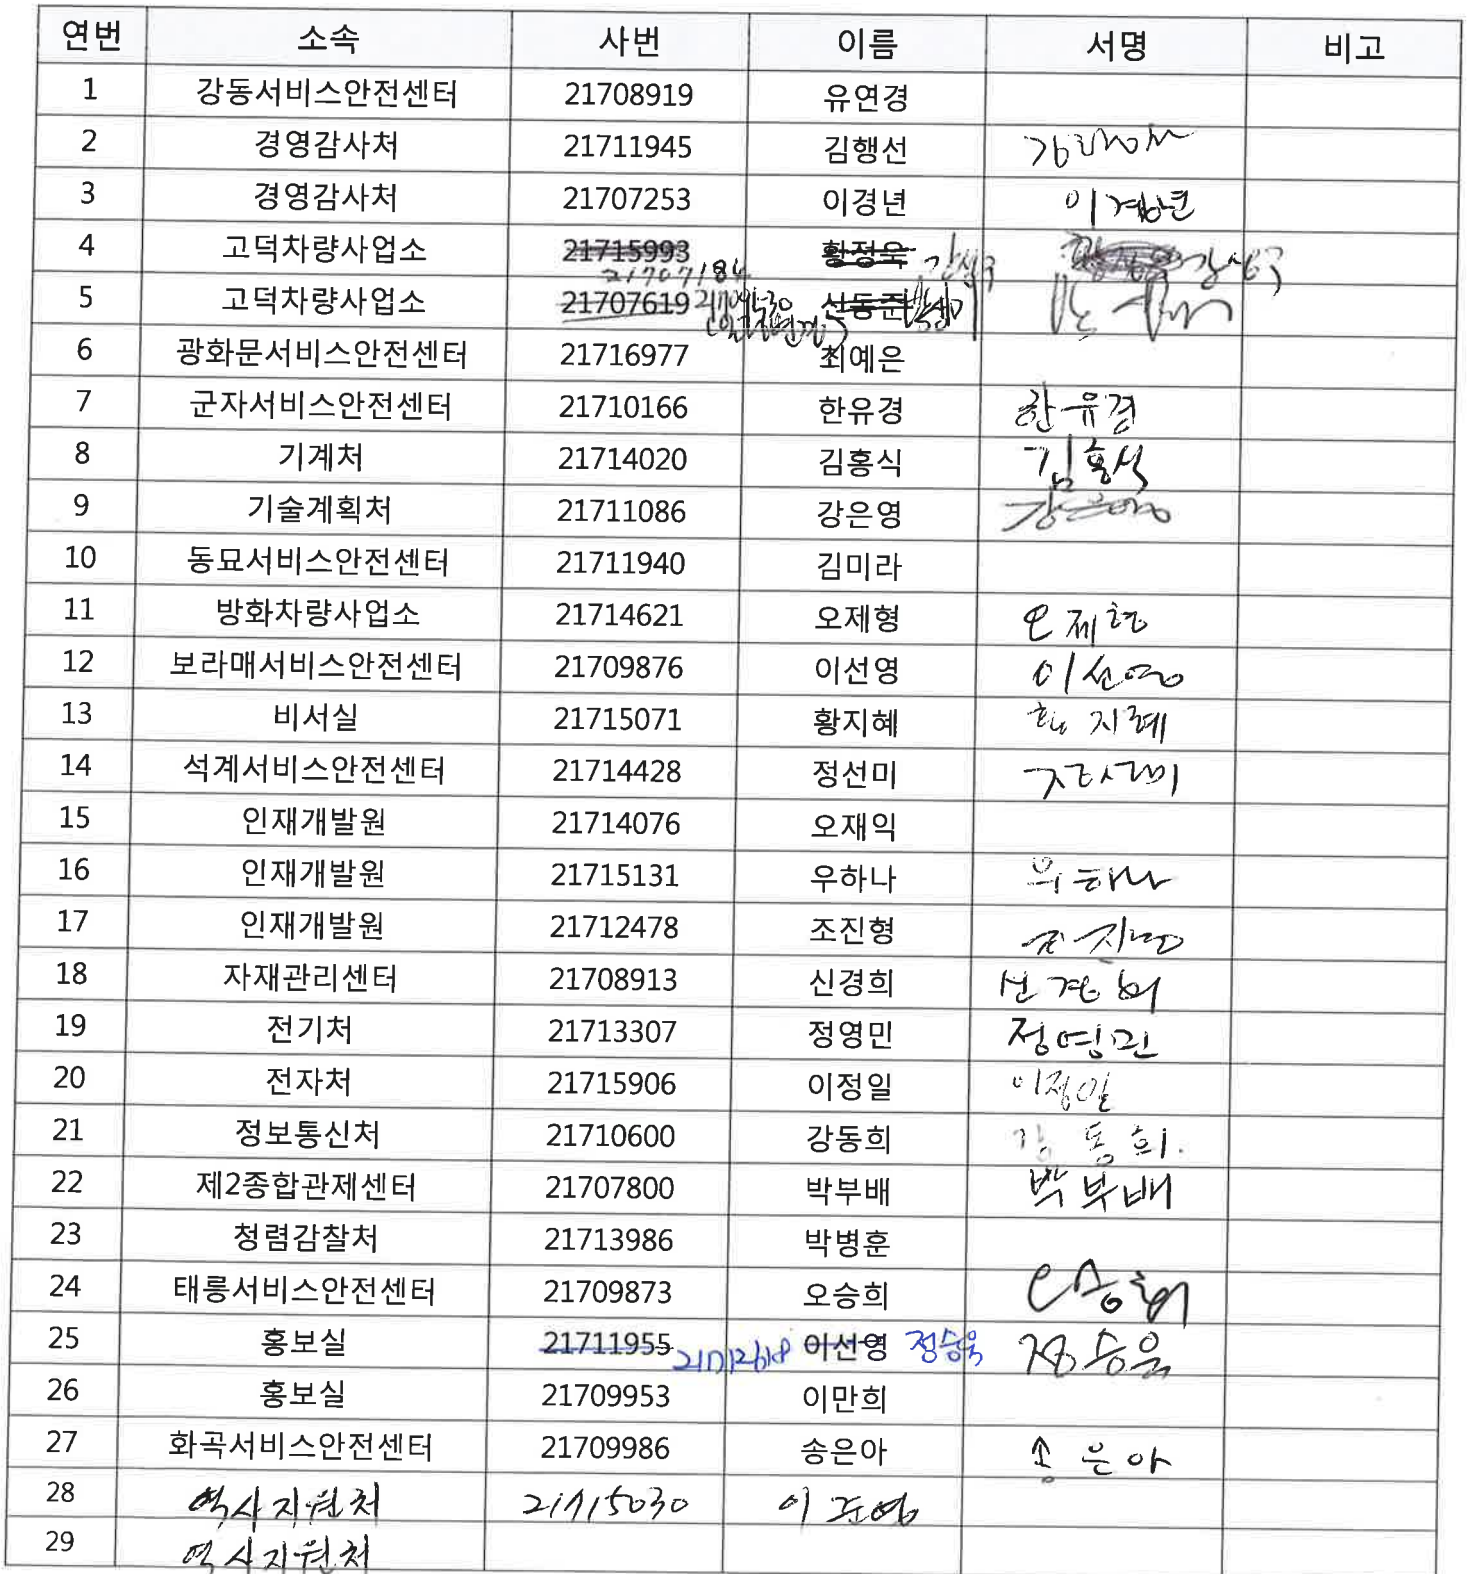 연번 소속 사번 이름 서명 비고
1 강동서비스안전센터 21708919 유연경
2 경영감사처 21711945 김행선
3 경영감사처 21707253 이경년 이경년
4 고덕차량사업소 21715993 황정욱
21707184
5 고덕차량사업소 21707619 신동준
6 광화문서비스안전센터 21716977 최예은
7 군자서비스안전센터 21710166 한유경 한유경
8 기계처 21714020 김홍식 김홍식
9 기술계획처 21711086 강은영 강은영
10 동묘서비스안전센터 21711940 김미라
11 방화차량사업소 21714621 오제형 오제형
12 보라매서비스안전센터 21709876 이선영 이선영
13 비서실 21715071 황지혜 황지혜
14 석계서비스안전센터 21714428 정선미 정선미
15 인재개발원 21714076 오재익
16 인재개발원 21715131 우하나 우하나
17 인재개발원 21712478 조진형 조진형
18 자재관리센터 21708913 신경희 신경희
19 전기처 21713307 정영민 정영민
20 전자처 21715906 이정일 이정일
21 정보통신처 21710600 강동희 강동희.
22 제2종합관제센터 21707800 박부배 박부배
23 청렴감찰처 21713986 박병훈
24 태릉서비스안전센터 21709873 오승희 오승희
25 홍보실 21711955 21712618 이선영 정승욱 정승욱
26 홍보실 21709953 이만희
27 화곡서비스안전센터 21709986 송은아 송은아
28 역사지원처 21715030 이준영
29 역사지원처